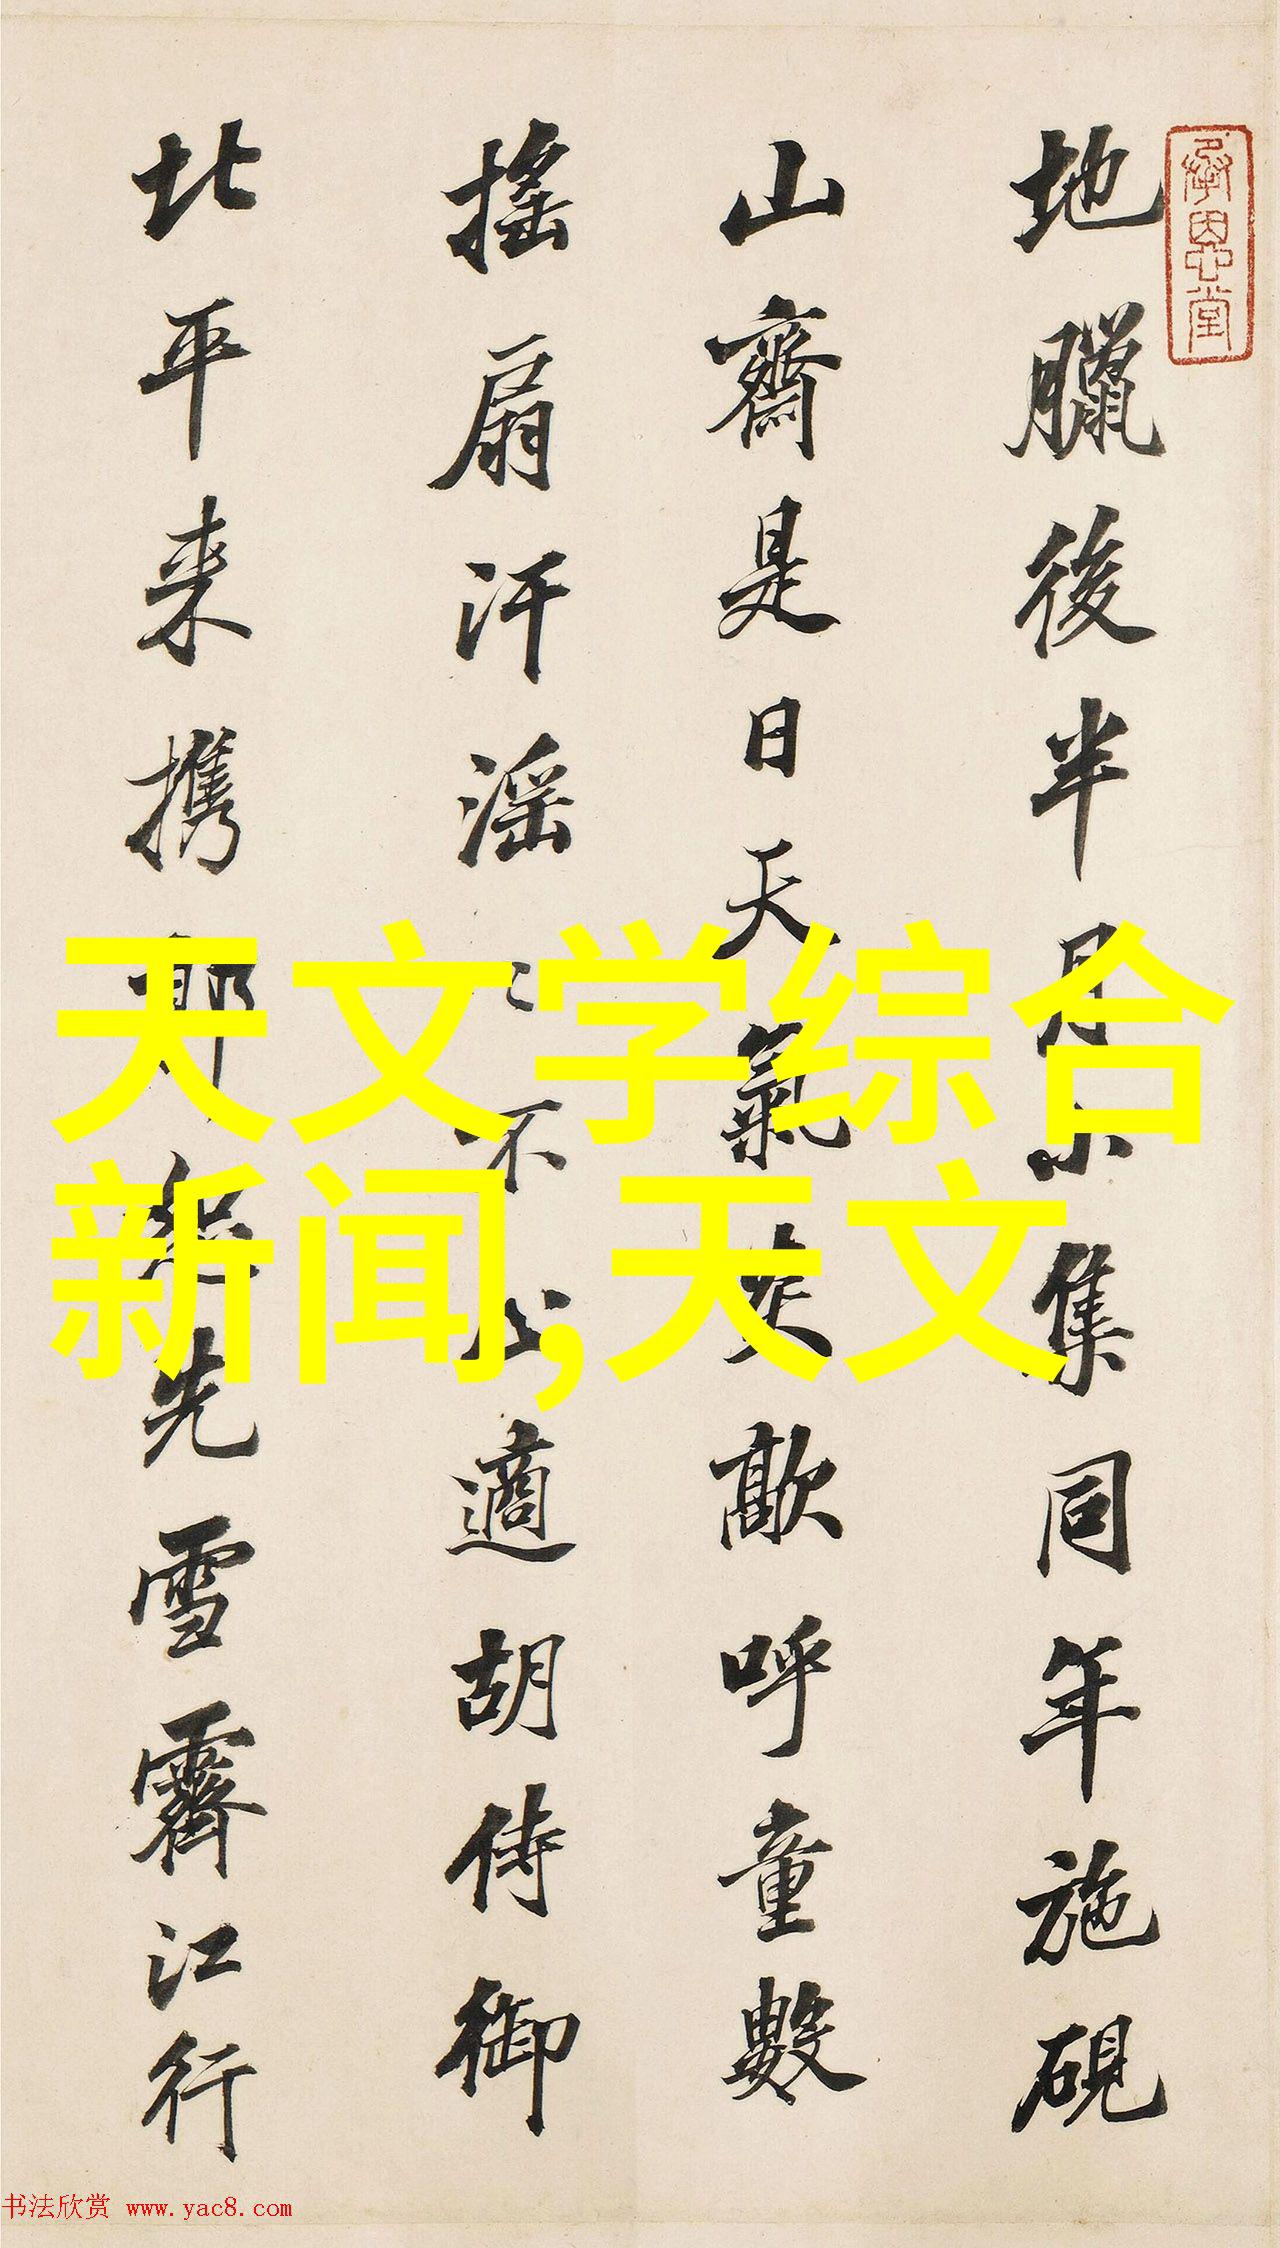 承恩堂
地臘後半月小集同年施硯
山齋是日天氣炎歊呼童數
搖扇汗滛〻不止適胡侍御
北平来攜郭熙先雪霽江行
天文学综合
新闻,天文
书法欣赏 www.yac8.com